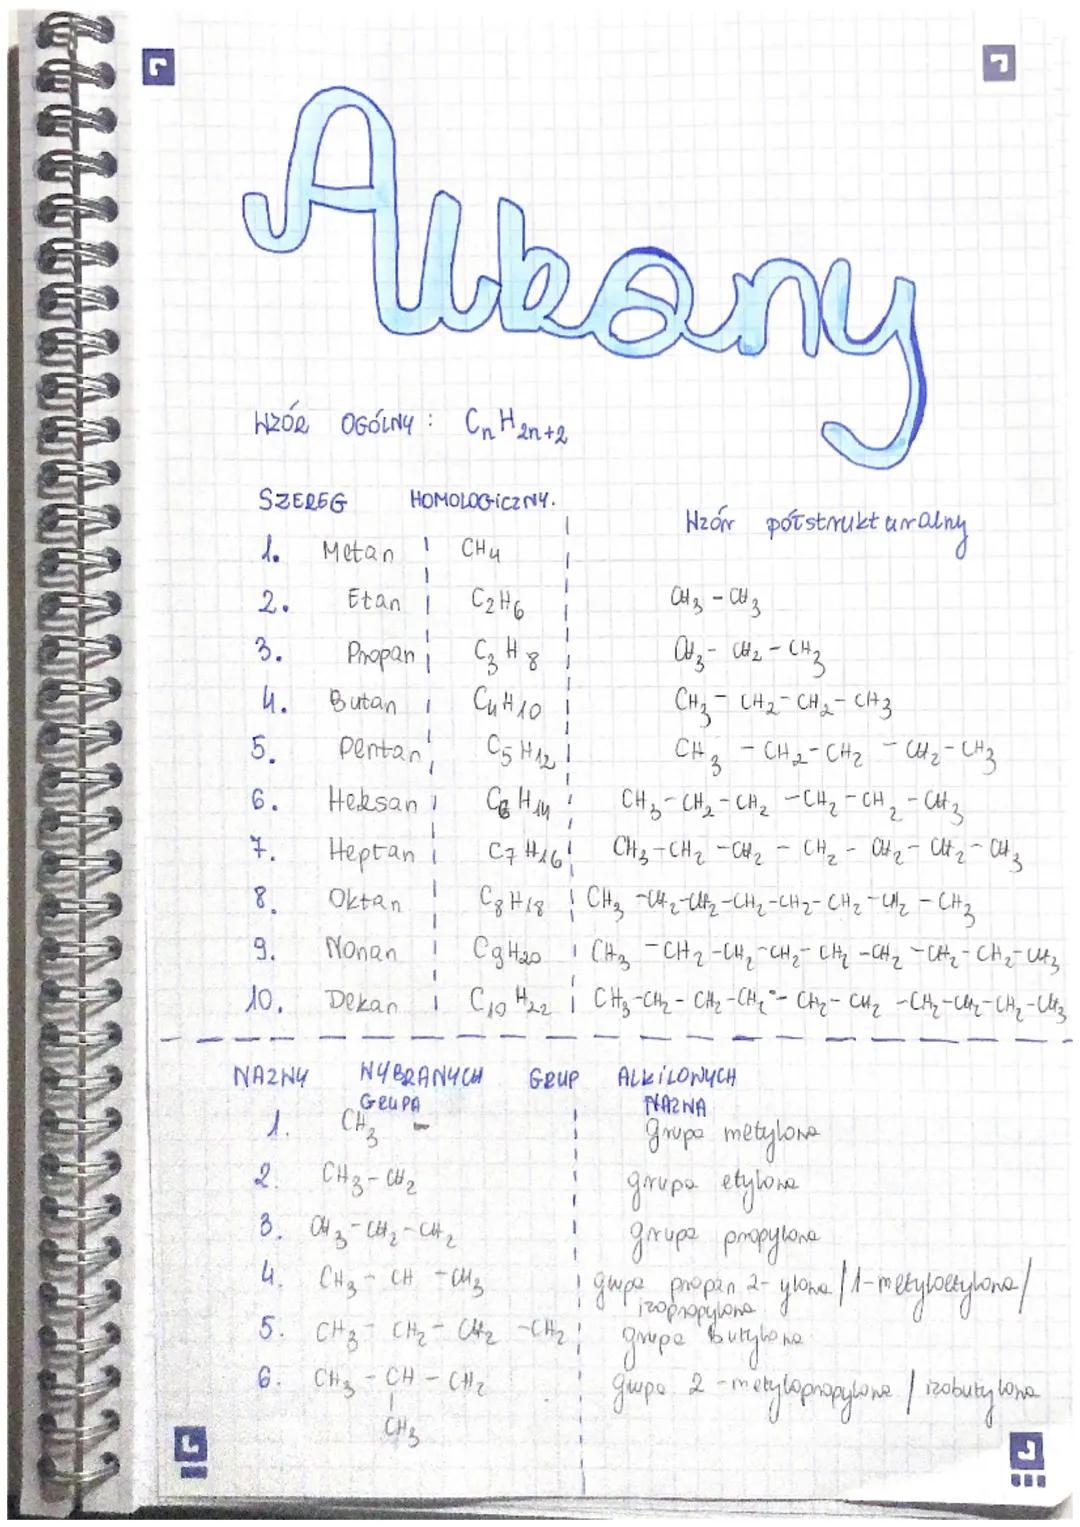 Alkany
WZÓR OGÓLNY : CnH2n+2
SZEREG HOMOLOGICZNY.
Wzór półstrukturalny
1. Metan CH4
2. Etan C2H6 CH3 - CH3
3. Propan C3H8 CH3 - CH2 - CH3
4. Butan C4H10 CH3 - CH2 - CH2 - CH3
5. Pentan C5H12 CH3 - CH2 - CH2 - CH2 - CH3
6. Heksan C6H14 CH3 - CH2 - CH2 - CH2 - CH2 - CH3
7. Heptan C7H16 CH3 - CH2 - CH2 - CH2 - CH2 - CH2 - CH3
8. Oktan C8H18 CH3 - CH2 - CH2 - CH2 - CH2 - CH2 - CH2 - CH3
9. Nonan C9H20 CH3 - CH2 - CH2 - CH2 - CH2 - CH2 - CH2 - CH2 - CH3
10. Dekan C10H22 CH3 - CH2 - CH2 - CH2 - CH2 - CH2 - CH2 - CH2 - CH2 - CH3
NAZWY WYBRANYCH GRUP ALKILOWYCH
GRUPA NAZWA
1. CH3 - grupa metylowa
2. CH3 - CH2 grupa etylowa
3. CH3 - CH2 - CH2 grupa propylowa
4. CH3 - CH - CH3 grupa propan 2-ylowa / 1-metyloetylowa /
izopropylowa
5. CH3 - CH2 - CH2 - CH2 grupa butylowa
6. CH3 - CH - CH2 grupa 2-metylopropylowa / izobutylowa
CH3